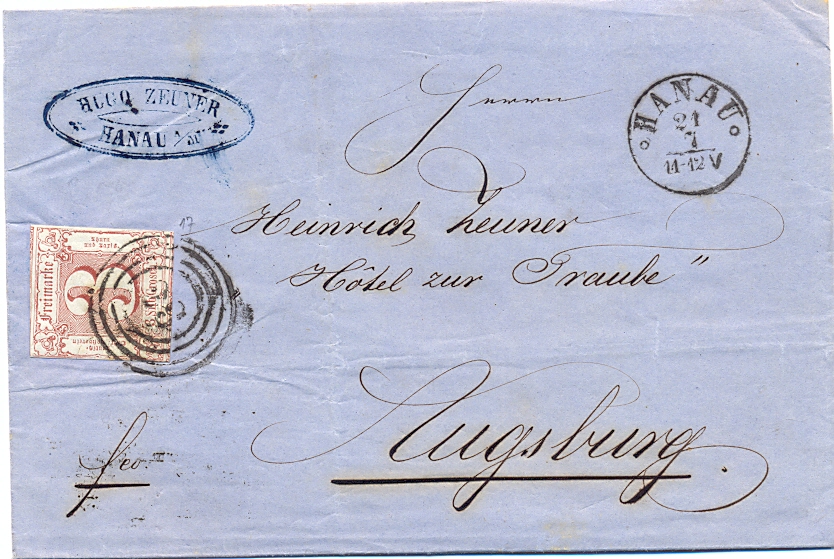 HUGO ZEUNER
HANAU a/M
HANAU
21
7
11-12 V
Herrn
17
Heinrich Zeuner
Hôtel zur Traube"
Freimarke
3
Augsburg.
fco